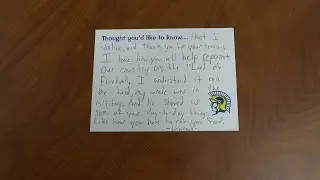 Thought you'd like to know... that I
value, and thank you for your service.
I love how you all help represent
our country as the "Land of
Freedom". I understand it can
be hard my uncle was in the
military. And he showed us
some of your day-to-day things
Like how you have to eat your food.